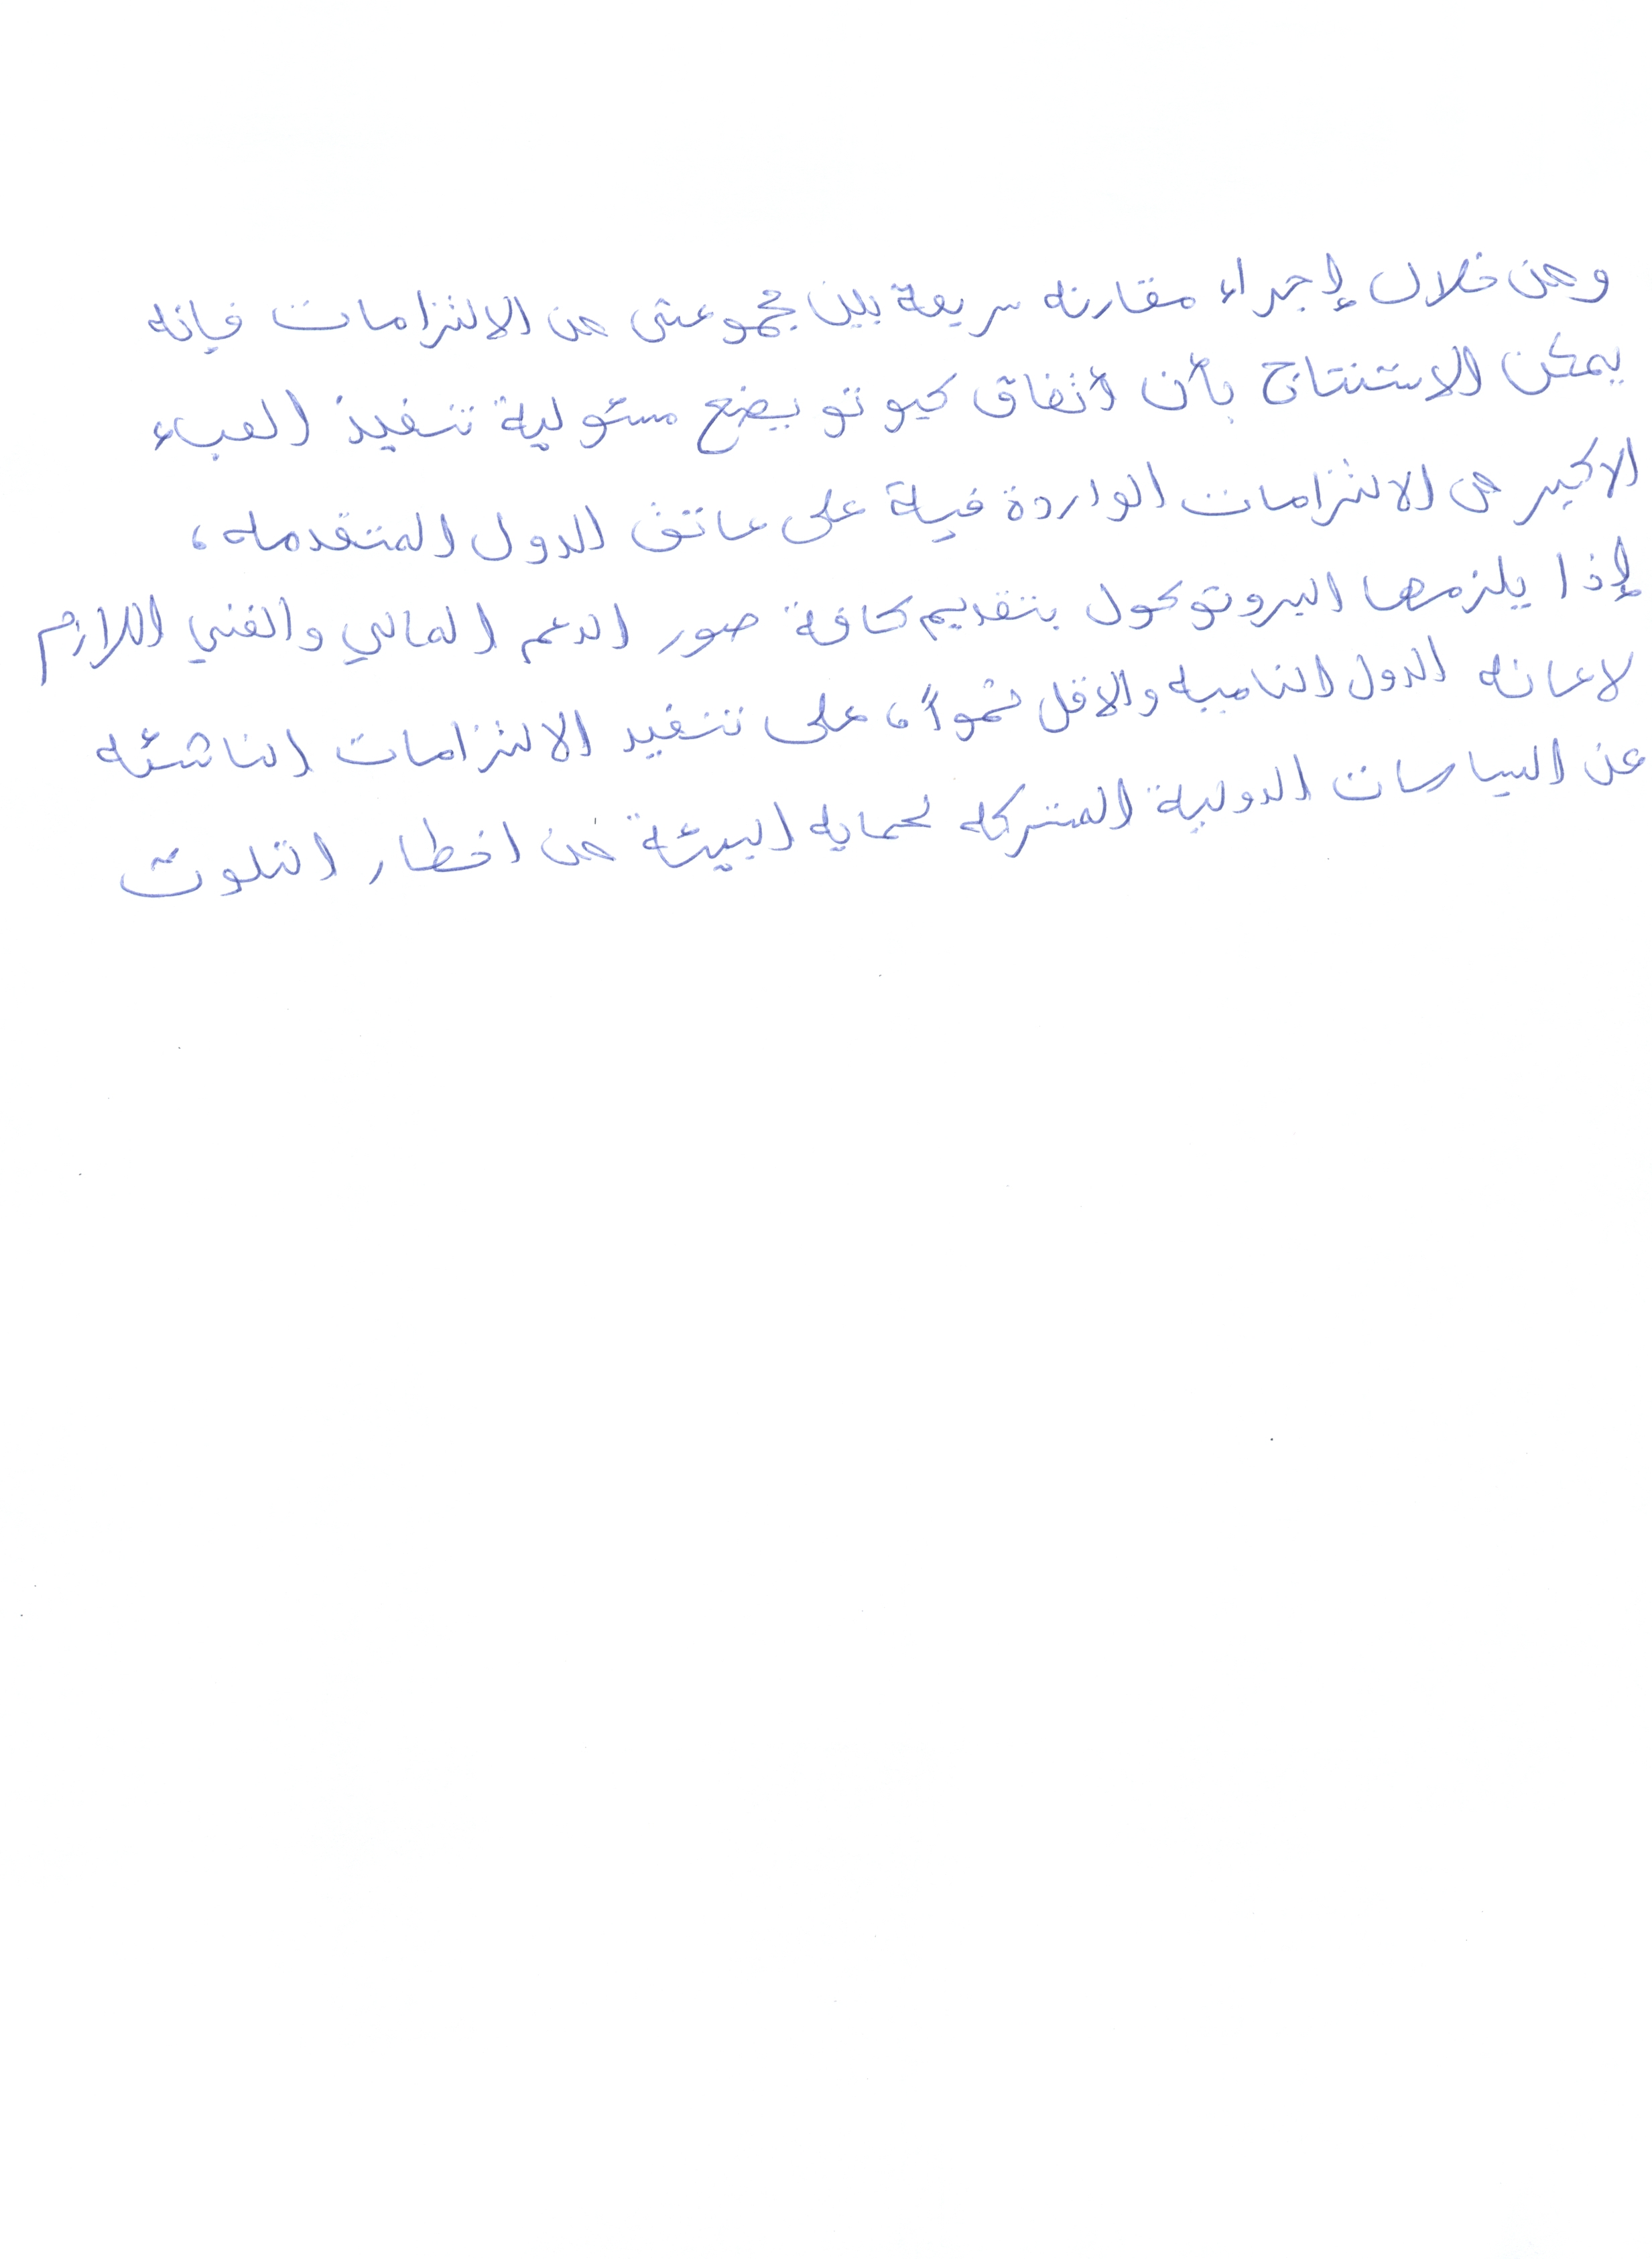 ومن خلال إجراء مقارنه سريعة بين مجموعتى من الالتزامات فإنه
يمكن الاستنتاج بأن أتفاق كيوتو يضع مسئولية تنفيذ العبء
الاكبر من الالتزامات الواردة فية على عاتق الدول المتقدمه،
إذا يلزمها البروتوكول بتقديم كافة صور الدعم المالي والفني اللازم
لاعانه الدول الناميه والاقل نمواً، على تنفيد الالتزامات الناشئه
عن السياسات الدولية المشتركه لحمايه البيئة من اخطار التلوث